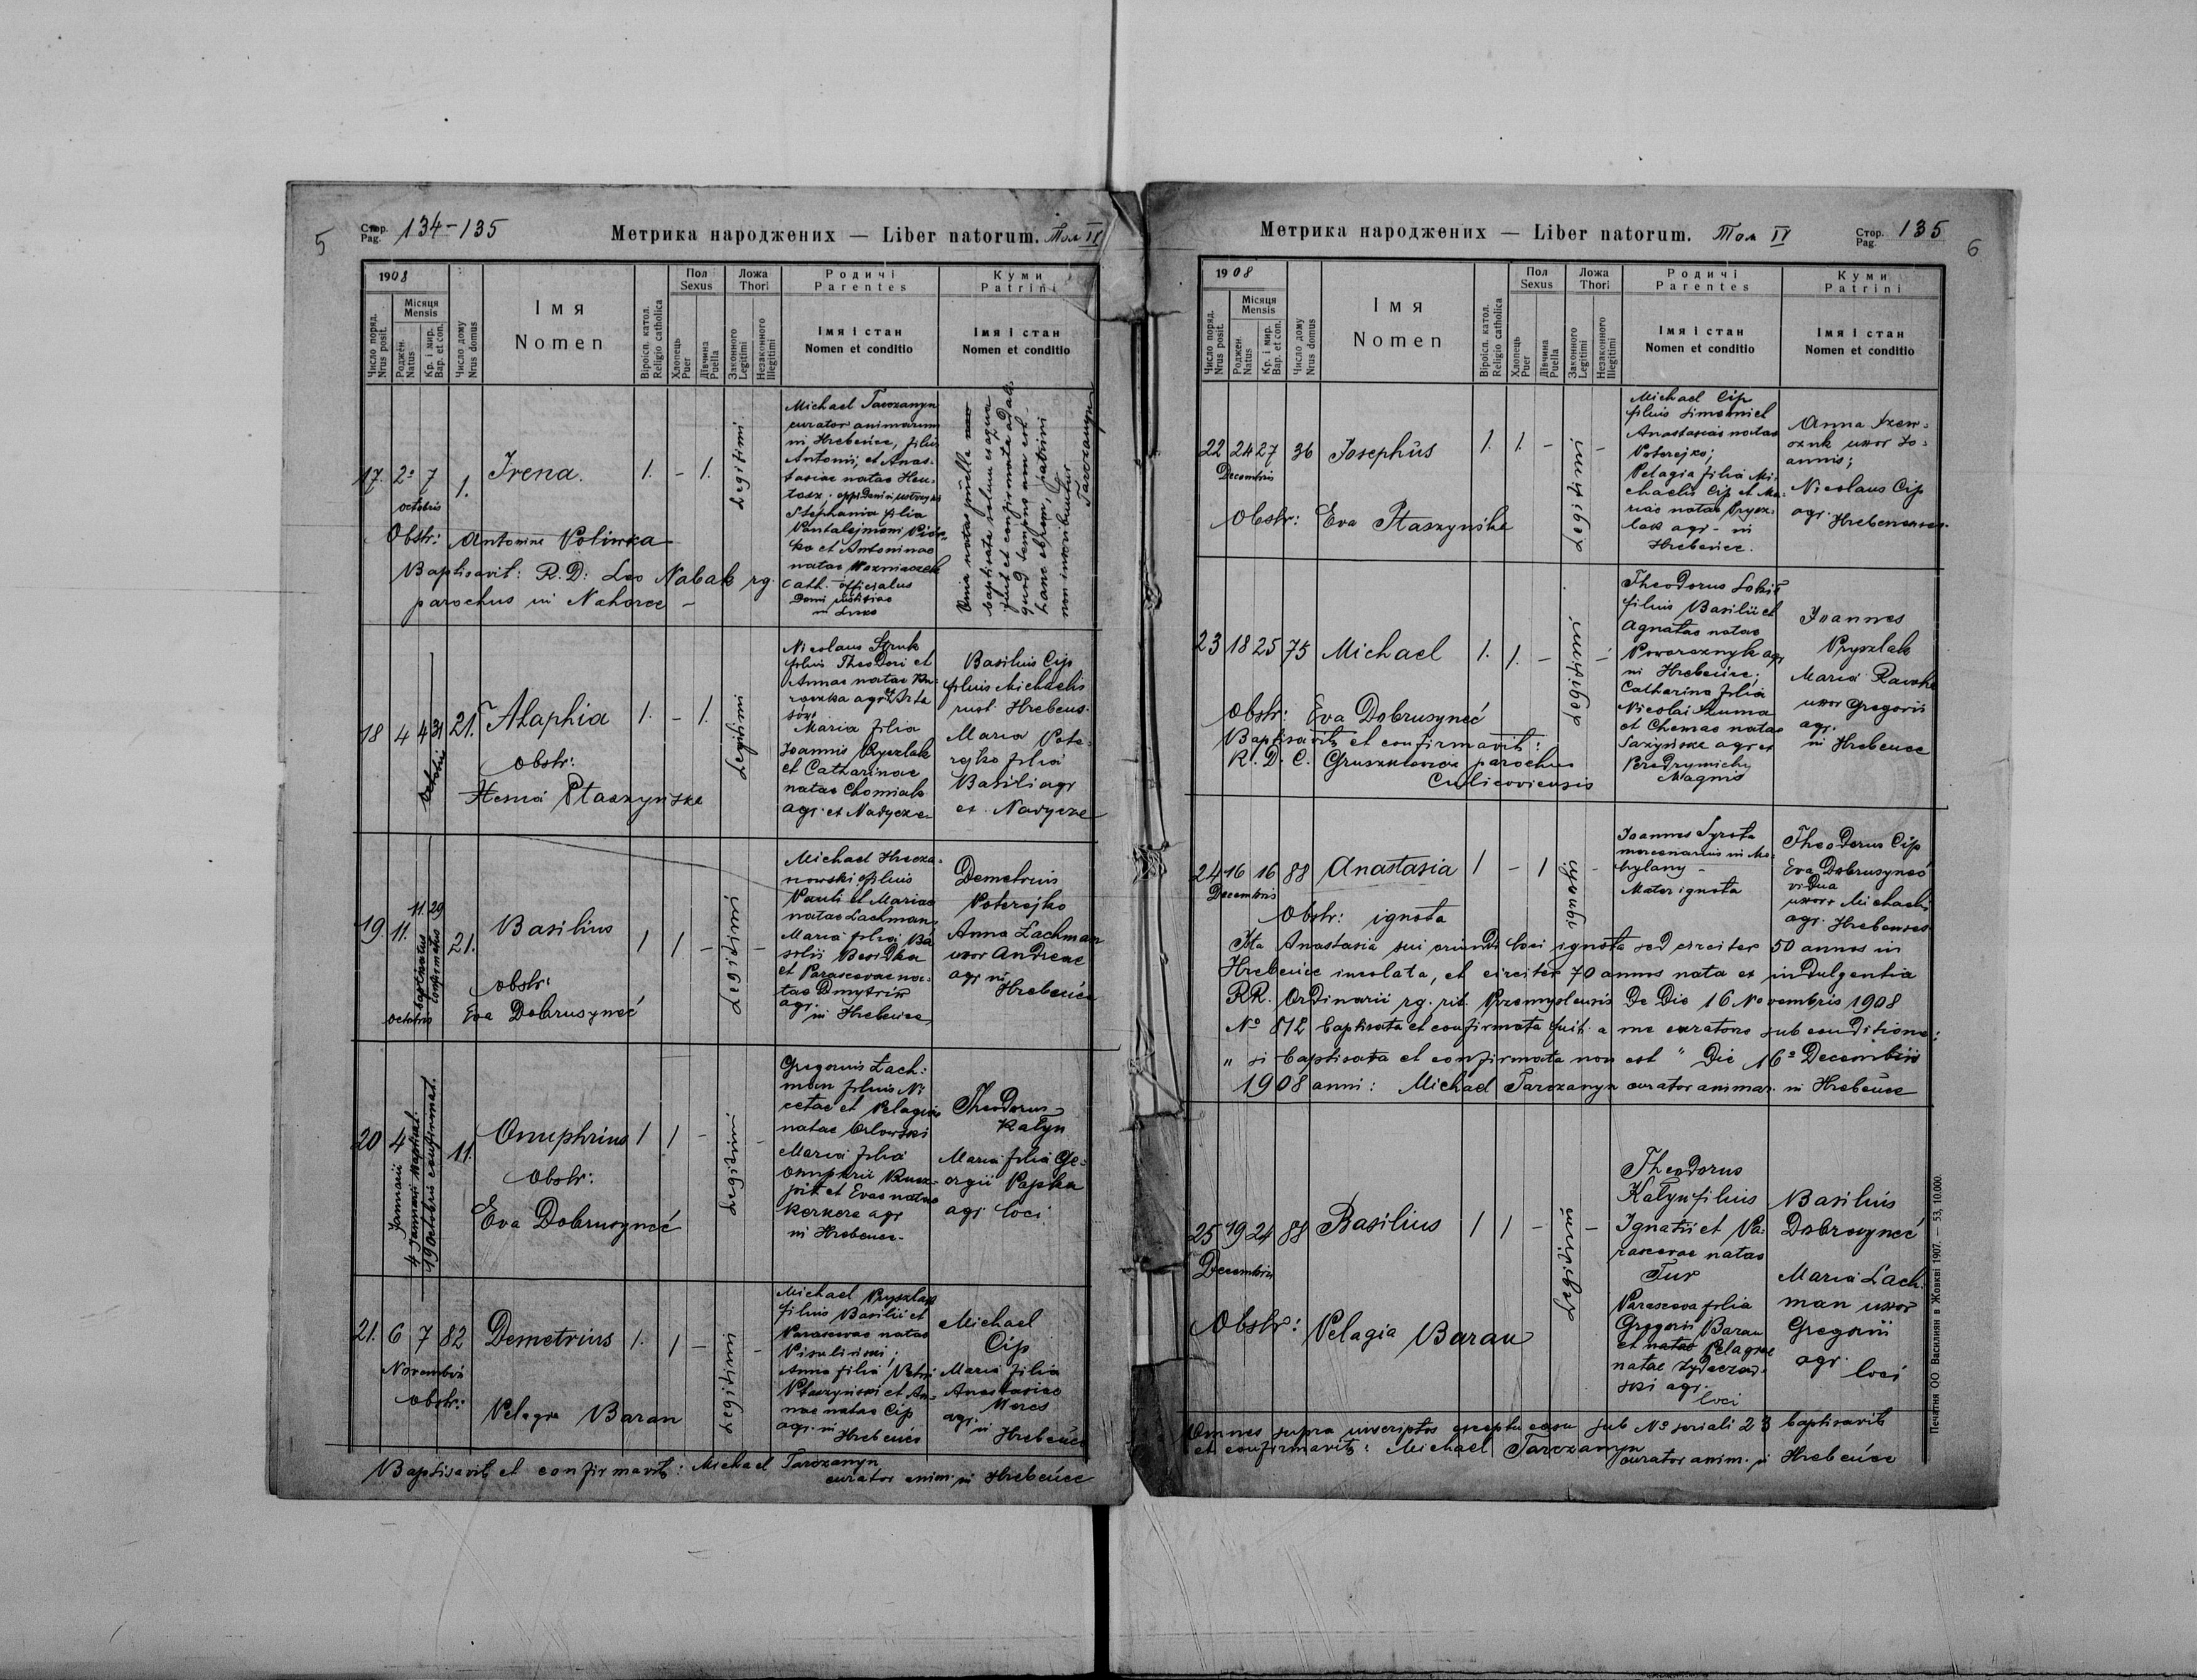 5
Стор.
Pag. 134-135
Метрика народжених — Liber natorum. Том II
1908
Число поряд.
Nrus posit.
Місяця
Mensis
Роджен.
Natus
Кр. і мир.
Bap. et con.
Число дому
Nrus domus
Імя
Nomen
Віроісп. катол.
Religio catholica
Пол
Sexus
Хлопець
Puer
Дівчина
Puella
Ложа
Thori
Законного
Legitimi
Незаконного
Illegitimi
Родичі
Parentes
Імя і стан
Nomen et conditio
Куми
Patrini
Імя і стан
Nomen et conditio
17. 2 7 1. Irena. 1. - 1. Legitimi
octobris
Obstr: Antonina Polinka
Baptisavit: R. D: Leo Nabak rg. cath.
parochus in Nahorce -
Michael Tarczanyn
curator animarum
in Hrebeńce, filius
Antonii, et Anas-
tasiae natae
Stephania filia
Pantalejmoni
ko et Antoninae
natae Wozniaczek
officialus
Domi justitiae
baptisata solum ex aqua
fuit et confirmata
quod tempus am est
hanc ebrem, patrini
non inscribuntur
Tarczanyn
18 4 4 31 21. Ataphia 1. - 1. Legitimi
Octobris
obstr:
Ptaszyńska
Nicolaus Struk
filius Theodori et
Annae natae
Maria filia
Joannis Pryszlak
et Catharinae
natae Chomiak
agr. et Nadycze
Basilius Cip
filius Michaelis
rust. Hrebens.
Maria Pote-
rejko filia
Basilii agr
et. Nadycze
19. 11. 11. 29 21. Basilius 1 1 - Legitimi -
baptisatus
confirmatus
octobris
obstr:
Eva Dobrusyneć
Michael Hrycza-
nowski filius
Pauli et Mariae
natae Lachman,
Maria filia Ba-
silii Besidka
et Parascevae na-
tae Dmytrów
agr.
in Hrebeńce
Demetrius
Poterejko
Anna Lachman
uxor Andreae
agr in
Hrebeńce
20 4 11. Onuphrius 1 1 - Legitimi -
Januarii
4 Januarii baptisat.
19 Octobris confirmat.
obstr:
Eva Dobrusyneć
Gregorius Lach:
man filius Ni
cetae et Pelagiae
natae Orlowski
Maria filia
Onuphrii
pit et Evae natae
Kernera agr
in Hrebeńce-
Theodorus
Kałyn
Maria filia Ge-
orgii Papka
agr. loci
21. 6 7 82 Demetrius 1. 1 - Legitimi -
Novembris
obstr: Pelagia Baran
Michael Pryszlak
filius Basilii et
Parascevae natae
Anna filia Petri
Ptaszyński et An-
nae natae Cip
agr. in
Hrebeńce
Michael
Cip
Maria filia
Anastasiae
Meres
agr. in
Hrebeńce
Baptisavit et confirmavit: Michael Tarczanyn
curator anim. in Hrebeńce
Метрика народжених — Liber natorum. Том II
Стор.
Pag. 135
6
1908
Число поряд.
Nrus posit.
Місяця
Mensis
Роджен.
Natus
Кр. і мир.
Bap. et con.
Число дому
Nrus domus
Імя
Nomen
Віроісп. катол.
Religio catholica
Пол
Sexus
Хлопець
Puer
Дівчина
Puella
Ложа
Thori
Законного
Legitimi
Незаконного
Illegitimi
Родичі
Parentes
Імя і стан
Nomen et conditio
Куми
Patrini
Імя і стан
Nomen et conditio
22 24 27 36 Josephus 1. 1. - Legitimi -
Decembris
Obstr: Eva Ptaszyńska
Michael Cip
filius Simeonis et
Anastasiae natae
Poterejko;
Pelagia filia Mi-
chaelis Cip et Ma-
riae natae Prysz-
lak agr. in
Hrebeńce.
Anna
uxor Jo-
annis;
Nicolaus Cip
agr. Hrebenenses
23 18 25 75 Michael 1. 1. - Legitimi -
obstr: Eva Dobrusyneć
Baptisavit et confirmavit:
R. D. C. Gruszkiewicz parochus
Culicoviensis
Theodorus
filius Basilii et
Agnatae natae
Powroznyk agr
in Hrebeńce;
Catharina filia
Nicolai Szuma
et natae
agr ex
Predrymichy
Magnis
Joannes
Pryszlak
Maria Rawska
uxor Gregorii
agr.
in Hrebeńce
24 16 16 88 Anastasia 1 - 1 ignoti -
Decembris
Obstr: ignota
Joannes Syrota
mercenarius in Mo-
hylany -
Mater ignota
Theodorus Cip
Eva Dobrusyneć
vidua
uxor + Michaelis
agr. Hrebenses
Ista Anastasia sui oriundi loci ignota sed circiter 50 annos in
Hrebeńce incolata, et circiter 70 annos nata ex indulgentia
RR. Ordinarii rg. rit. Przemysleusis De Die 16 Novembris 1908
No 812 baptisata et confirmata fuit a me curatore sub conditione:
" si baptisata et confirmata non est " Die 16a Decembris
1908 anni: Michael Tarczanyn curator animar. in Hrebeńce
25 19 24 88 Basilius 1 1 - Legitimi -
Decembris
Obstr: Pelagia Baran
Theodorus
Kałyn filius
Ignatii et Pa-
rascevae natae
Tur
Parasceva filia
Gregorii Baran
et natae Pelagiae
natae Zydaczew-
ski agr.
loci
Basilius
Dobrosyneć
Maria Lach-
man uxor
Gregorii
agr.
loci
Omnes supra inscriptos excepto casu sub No seriali 23 baptisavit
et confirmavit: Michael Tarczanyn
curator anim. in Hrebeńce
Печатня ОО. Василиян в Жовкві 1907. — 53, 10.000.